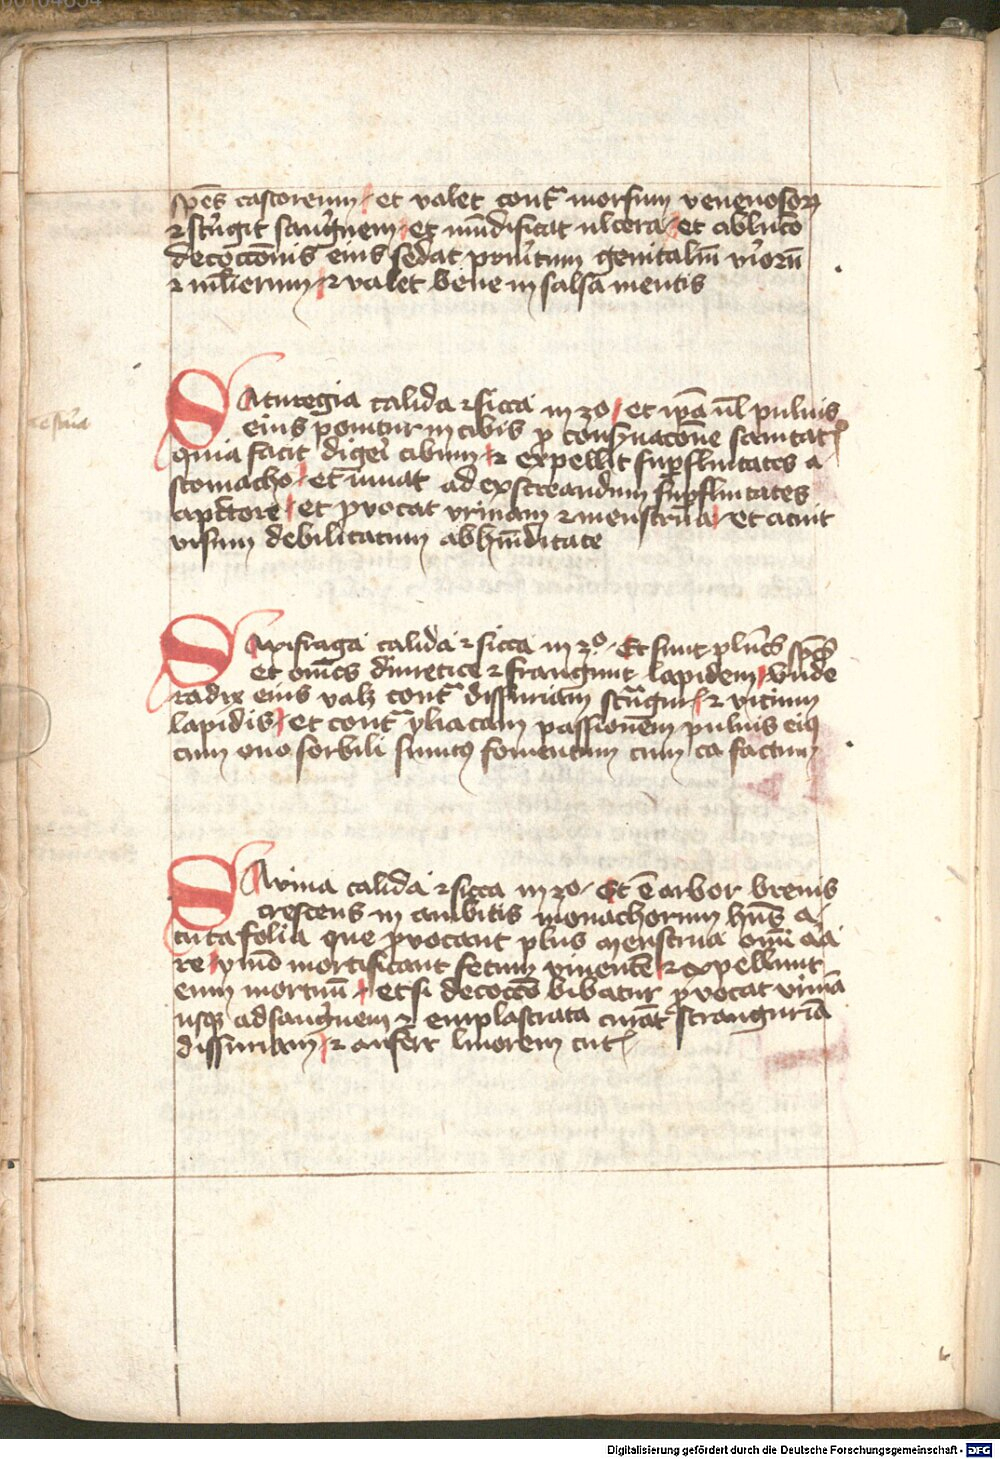 spēs castoreum et valet contͣ morsum venenosoꝝ
⁊ stͥngit sangͥnem et mūdificat ulcera et ablutō
decoccōnis eius sedat prurͥtum genitaliū virorū
⁊ mͥlierum ⁊ valet bene in salsa mentis
Saturegia calida ⁊ sicca in 3o et ipā ul puluis
eius ponitur in cibis ꝑ consͥuacōne sanitatꝭ
quia facit digeͥ cibum ⁊ expellit suꝑfluitates a
stomacho et iuuat ad exscreandum suꝑfluitates
a pectore et ꝓvocat vrinam ⁊ menstrua et acuit
visum debilitatum ab hūiditate
Saxifraga calida ⁊ sicca in 3o Et sunt plͥes spēs
et omēs diuretice ⁊ frangunt lapidem vnde
radix eius valꝫ contͣ dissuriam stͣngurͥ ⁊ vicium
lapidis et contͣ yliacam passionem puluis eiꝯ
cum ouo sorbili sumtꝯ fomentum cum ea factum
Savina calida ⁊ sicca in 3o Et ē arbor brevis
crescens in ambitis monachorum hn̄s a
cuta folia que ꝓvocant plus menstrua
re ymō mortificant fetum viuentē ⁊ expellunt
eum mortuū et si decoctō bibatur ꝓvocat vrinā
usqꝫ ad sangͥnem ⁊ emplastrata curāt strangurīā
dissuriam ⁊ aufert liuorem cutꝭ
Digitalisierung gefördert durch die Deutsche Forschungsgemeinschaft - DFG